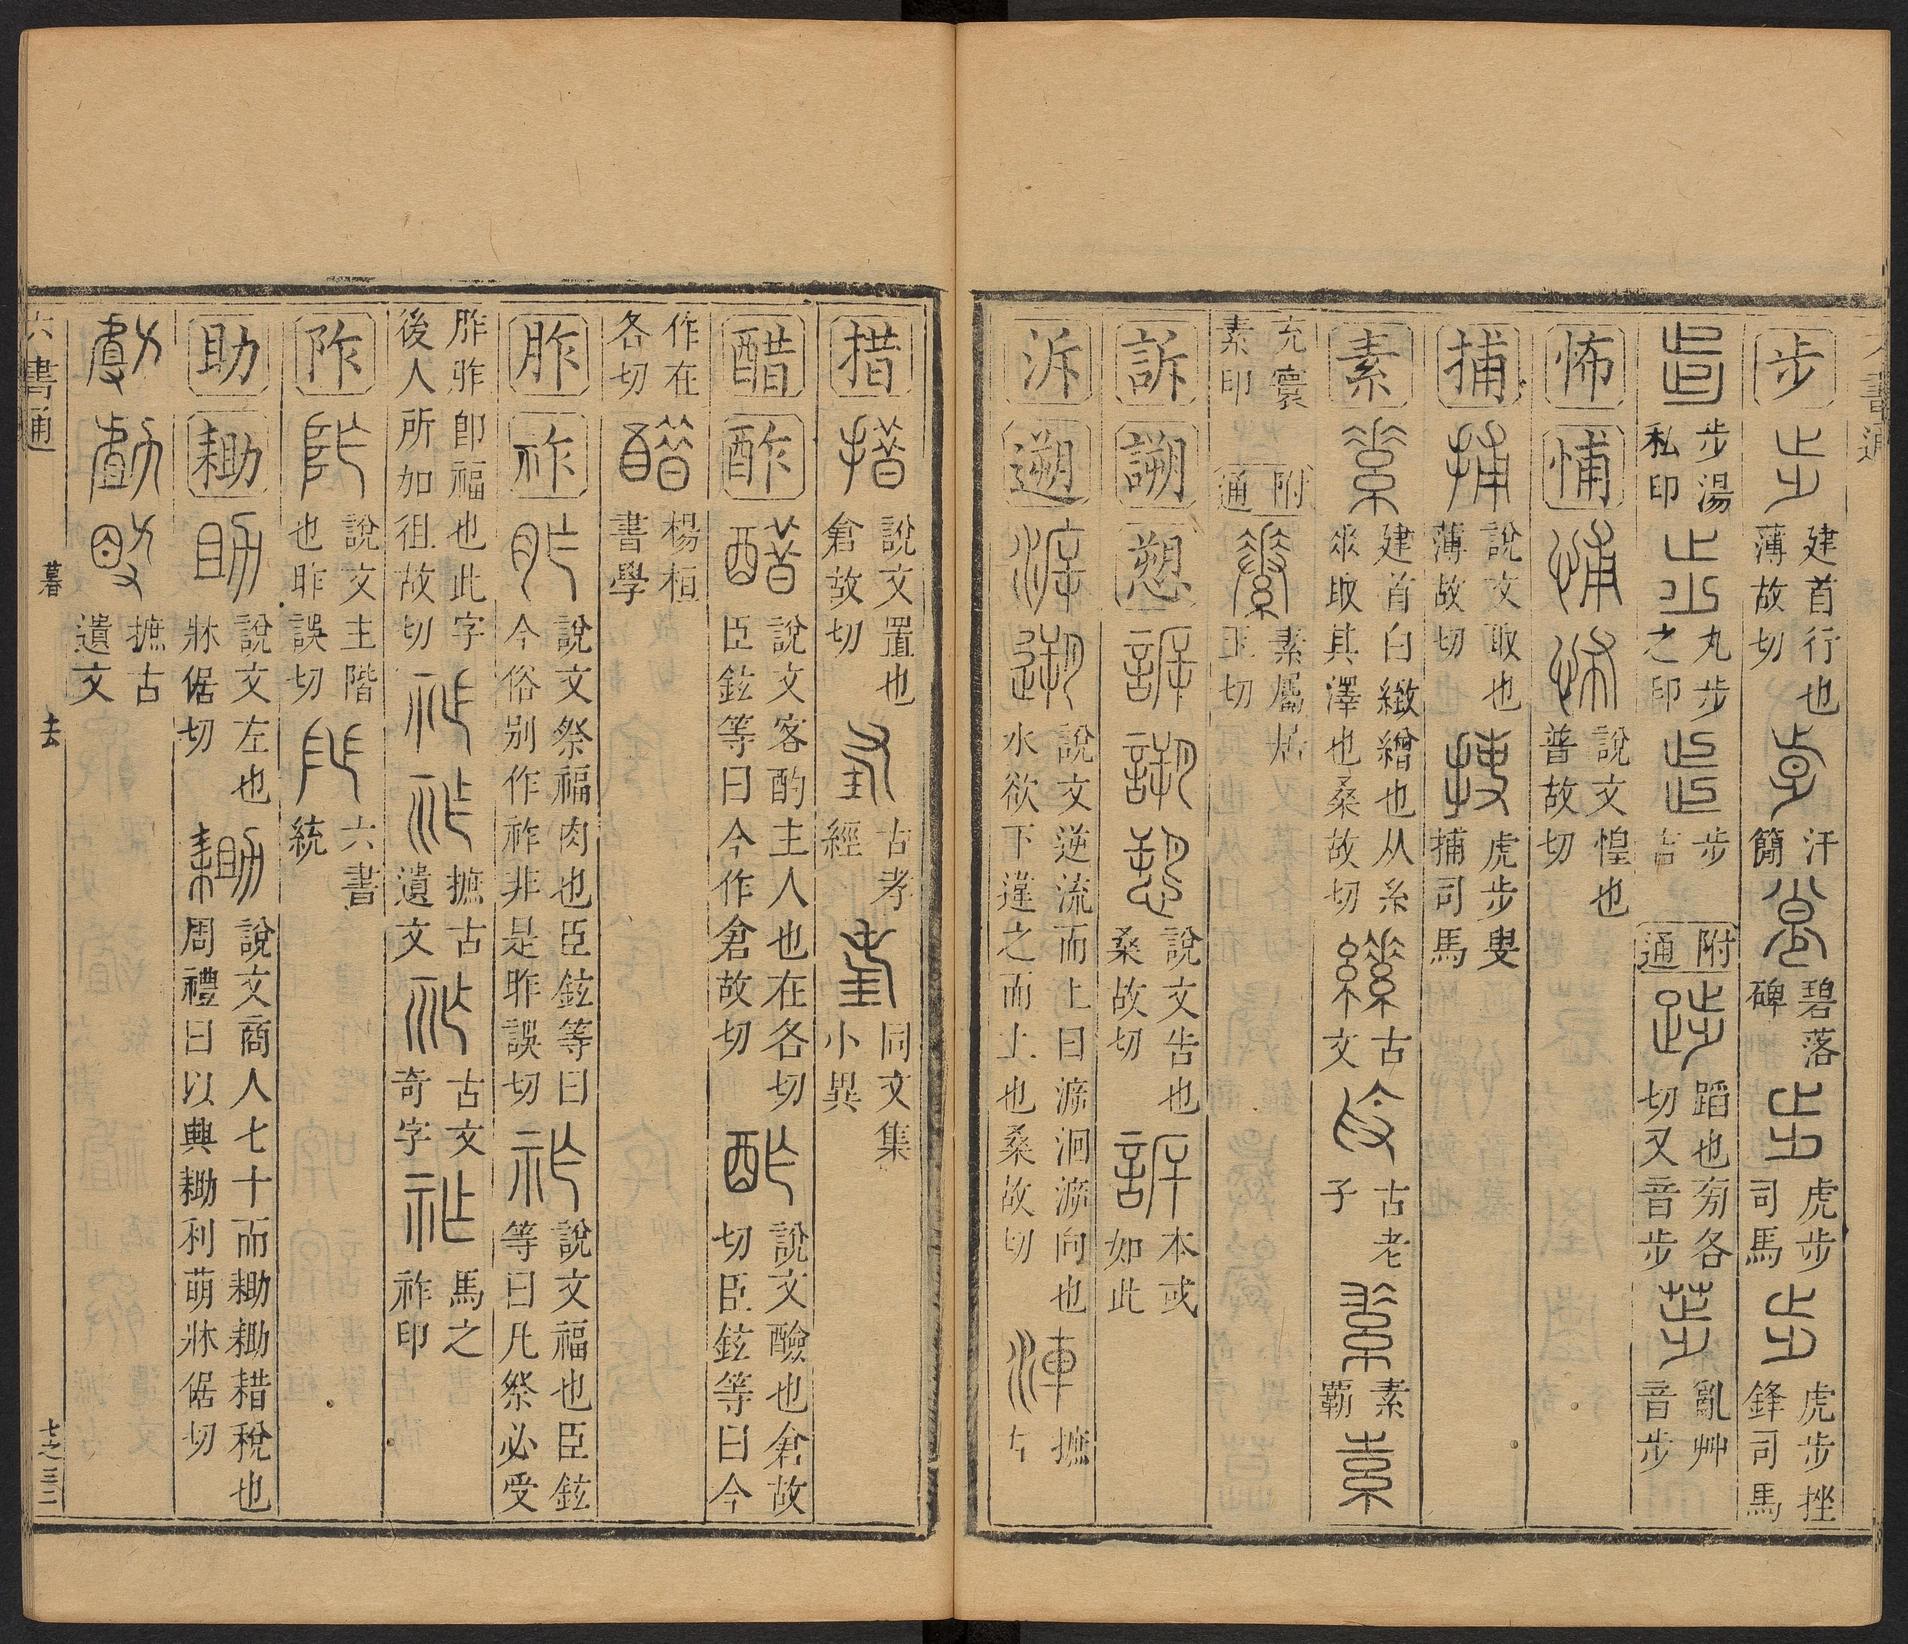 步
建首行也薄故切
汗簡
碧落碑
虎步司馬
虎步挫鋒司馬
步湯私印
丸步之印
步
附通
蹈也㫄各切又音步
亂艸音步
怖悑
說文惶也普故切
捕
說文取也薄故切
虎步叟捕司馬
素
建首白緻繒也从糸𠂹取其澤也桑故切
古文
古老子
素霸
充寰素印
附通
素屬居玉切
訴謝愬
說文告也桑故切
本或如此
泝遡
說文逆流而上曰㴑洄㴑向也水欲下違之而上也桑故切
摭古
措
說文置也倉故切
古孝經
同文集小異
醋酢
說文客酌主人也在各切臣鉉等曰今作倉故切
說文醶也倉故切臣鉉等曰今
作在各切
楊桓書學
胙祚
說文祭福肉也臣鉉等曰今俗別作祚非是昨誤切
說文福也臣鉉等曰凡祭必受
胙胙卽福也此字後人所加徂故切
摭古遺文
古文奇字
馬之祚印
阼
說文主階也昨誤切
六書統
助耡
說文左也牀倨切
說文商人七十而耡耡耤稅也周禮曰以興耡利萌牀倨切
摭古遺文
六書通
暮
去
七之三二